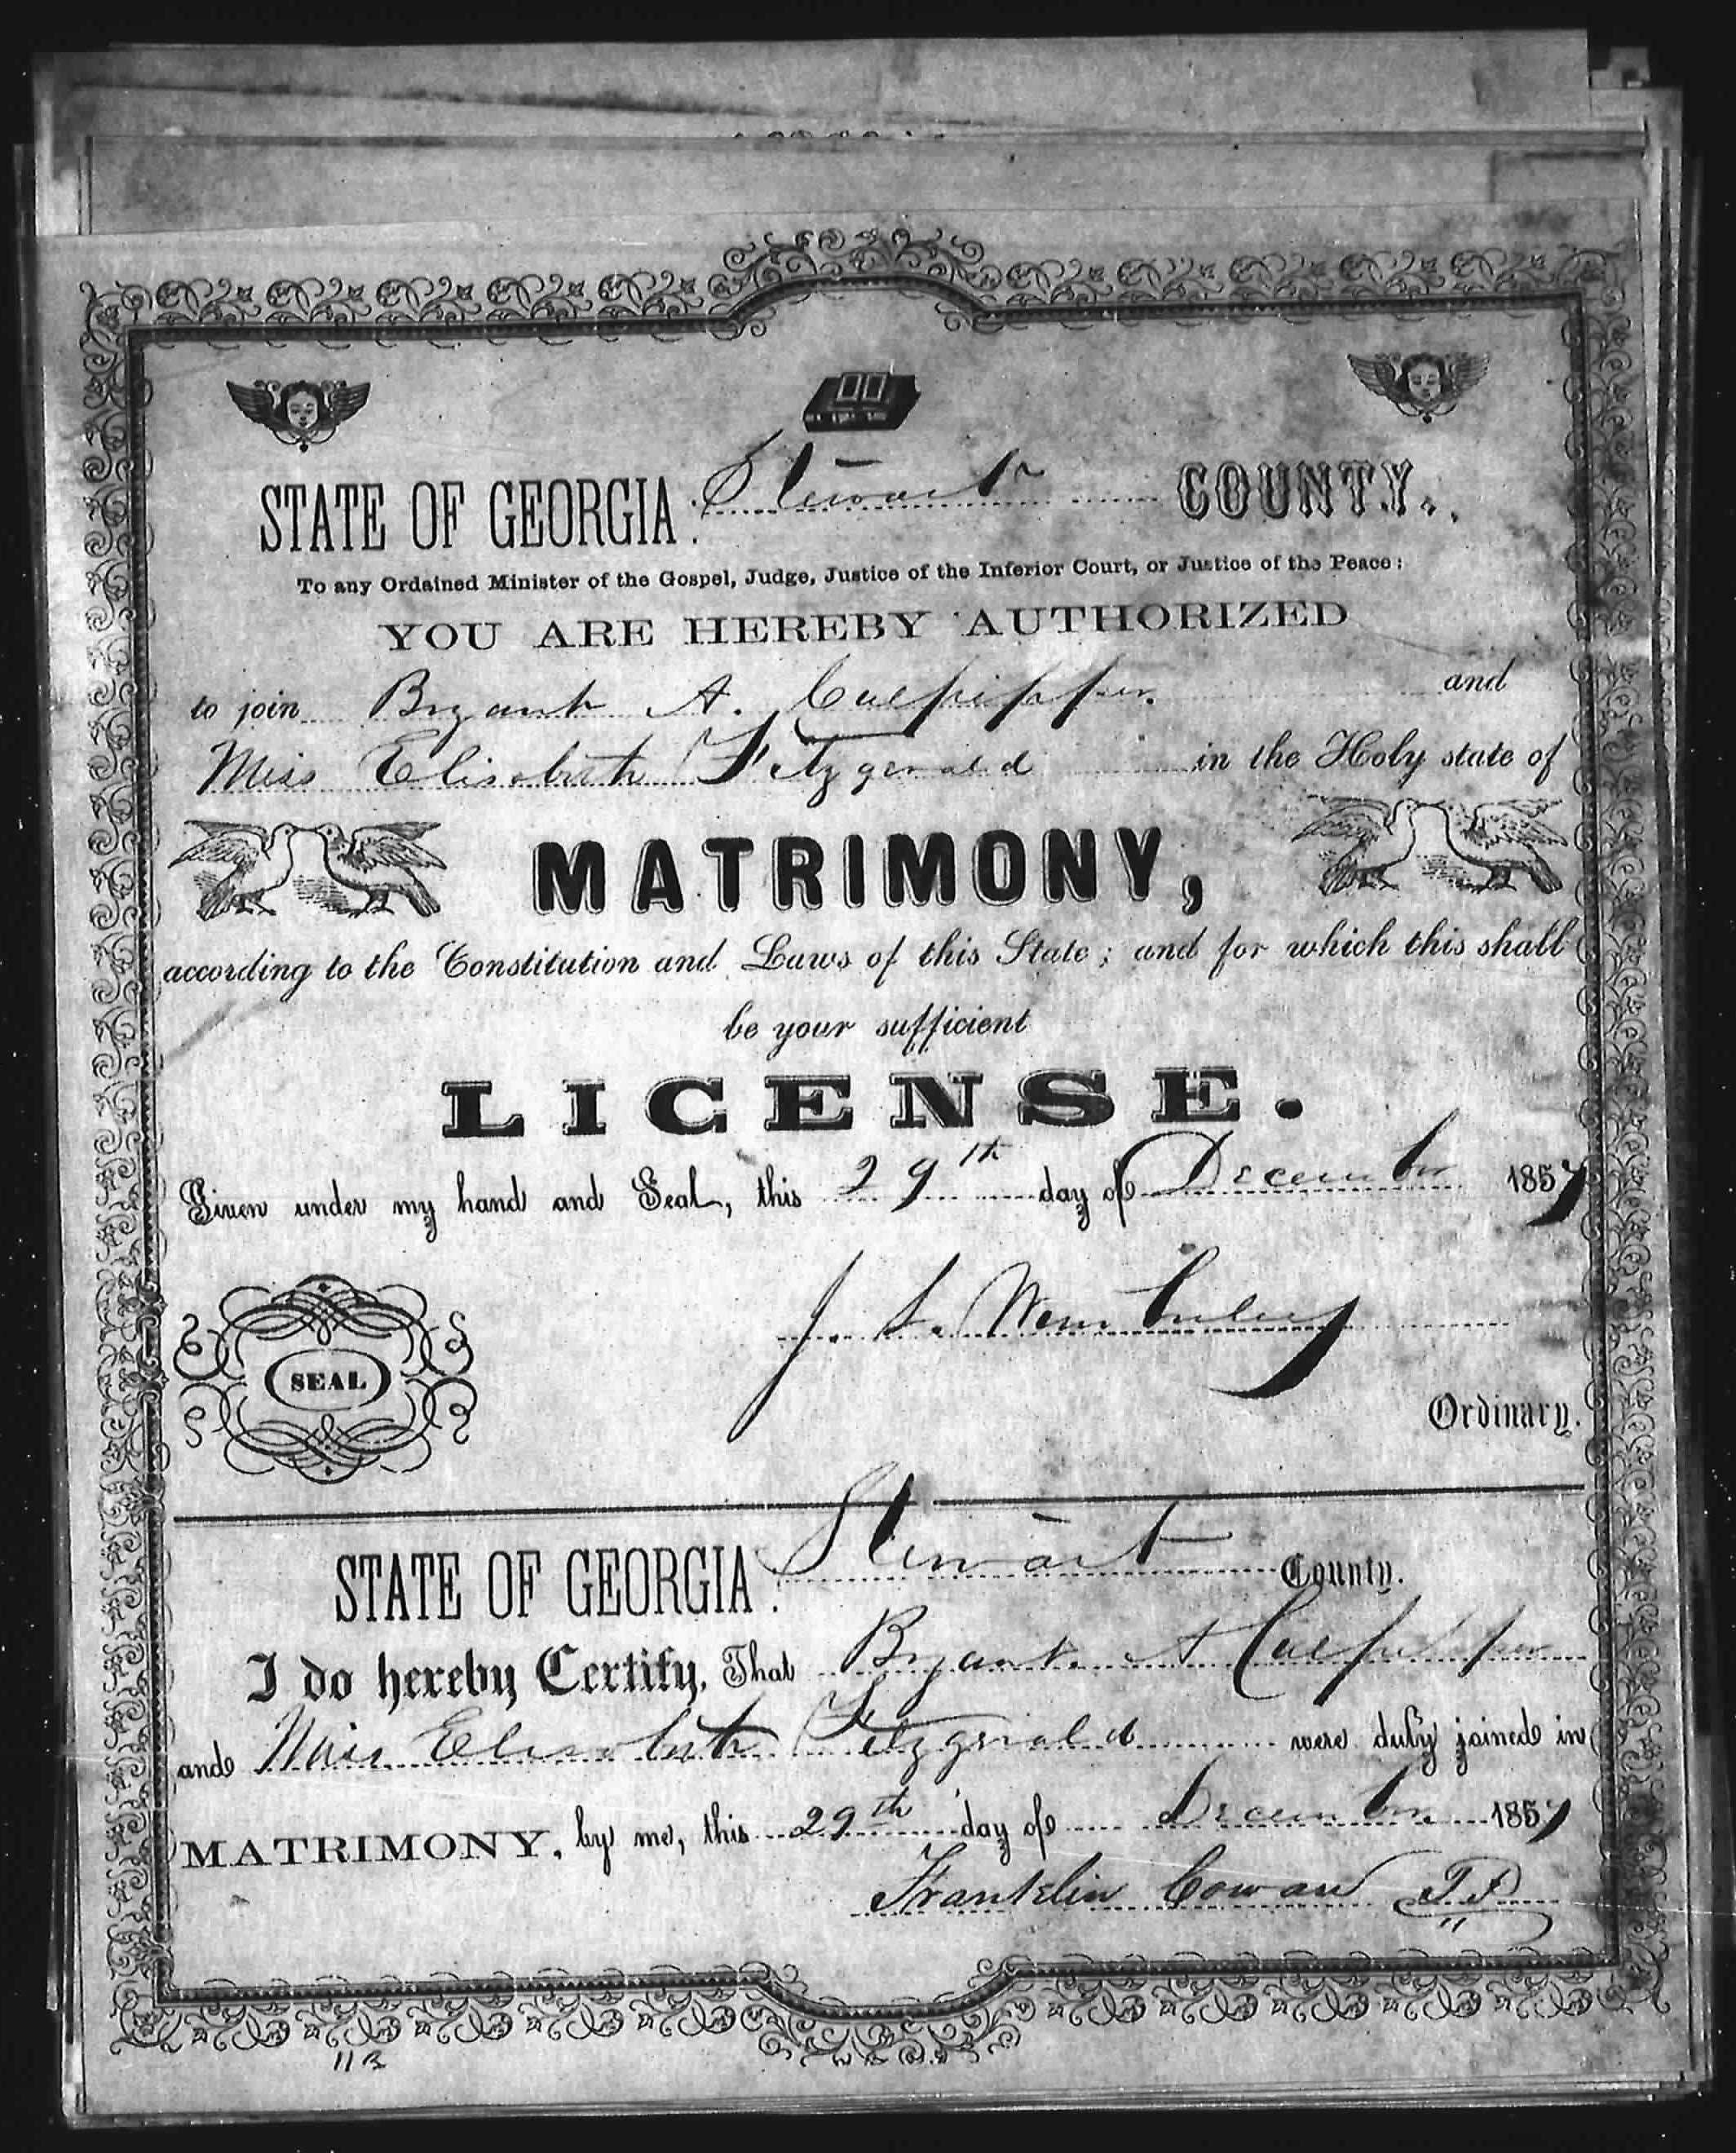 STATE OF GEORGIA. Stewart COUNTY.
To any Ordained Minister of the Gospel, Judge, Justice of the Inferior Court, or Justice of the Peace:
YOU ARE HEREBY AUTHORIZED
to join Bryant A. Culpipper. and
Miss Elisabeth Fitzgerald in the Holy state of
MATRIMONY,
according to the Constitution and Laws of this State; and for which this shall
be your sufficient
LICENSE.
Given under my hand and Seal, this 29th day of December 1857
J. L. Wimberley
SEAL
Ordinary.
STATE OF GEORGIA. Stewart County.
I do hereby Certify, That Bryant A Culpipper
and Miss Elisabeth Fitzgerald were duly joined in
MATRIMONY, by me, this 29th day of December 1857
Franklin Cowan J.P.